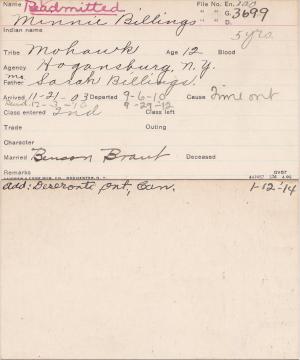 Name Readmitted File No. En.
Minnie Billings " " G. 3699
" " D.
Indian name 5 yrs.
Tribe Mohawk Age 12 Blood
Agency Hogansburg, N.Y.
Mo. Father Sarah Billings.
Arrived 11-21-03 Departed 9-6-10 Cause Time out
Read. 12-3-10 9-29-12
Class entered 2nd Class left
Trade Outing
Character
Married Benson Brant Deceased
Remarks OVER
Add: Deseronto Ont, Can. 1-12-14